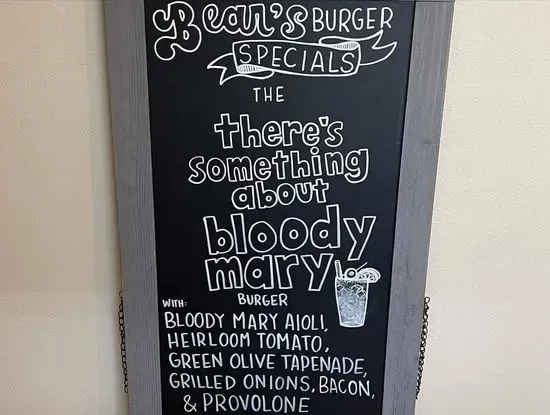 Bear's BURGER
SPECIALS
THE
there's
something
about
bloody
mary
BURGER
WITH:
BLOODY MARY AIOLI,
HEIRLOOM TOMATO,
GREEN OLIVE TAPENADE,
GRILLED ONIONS, BACON,
& PROVOLONE